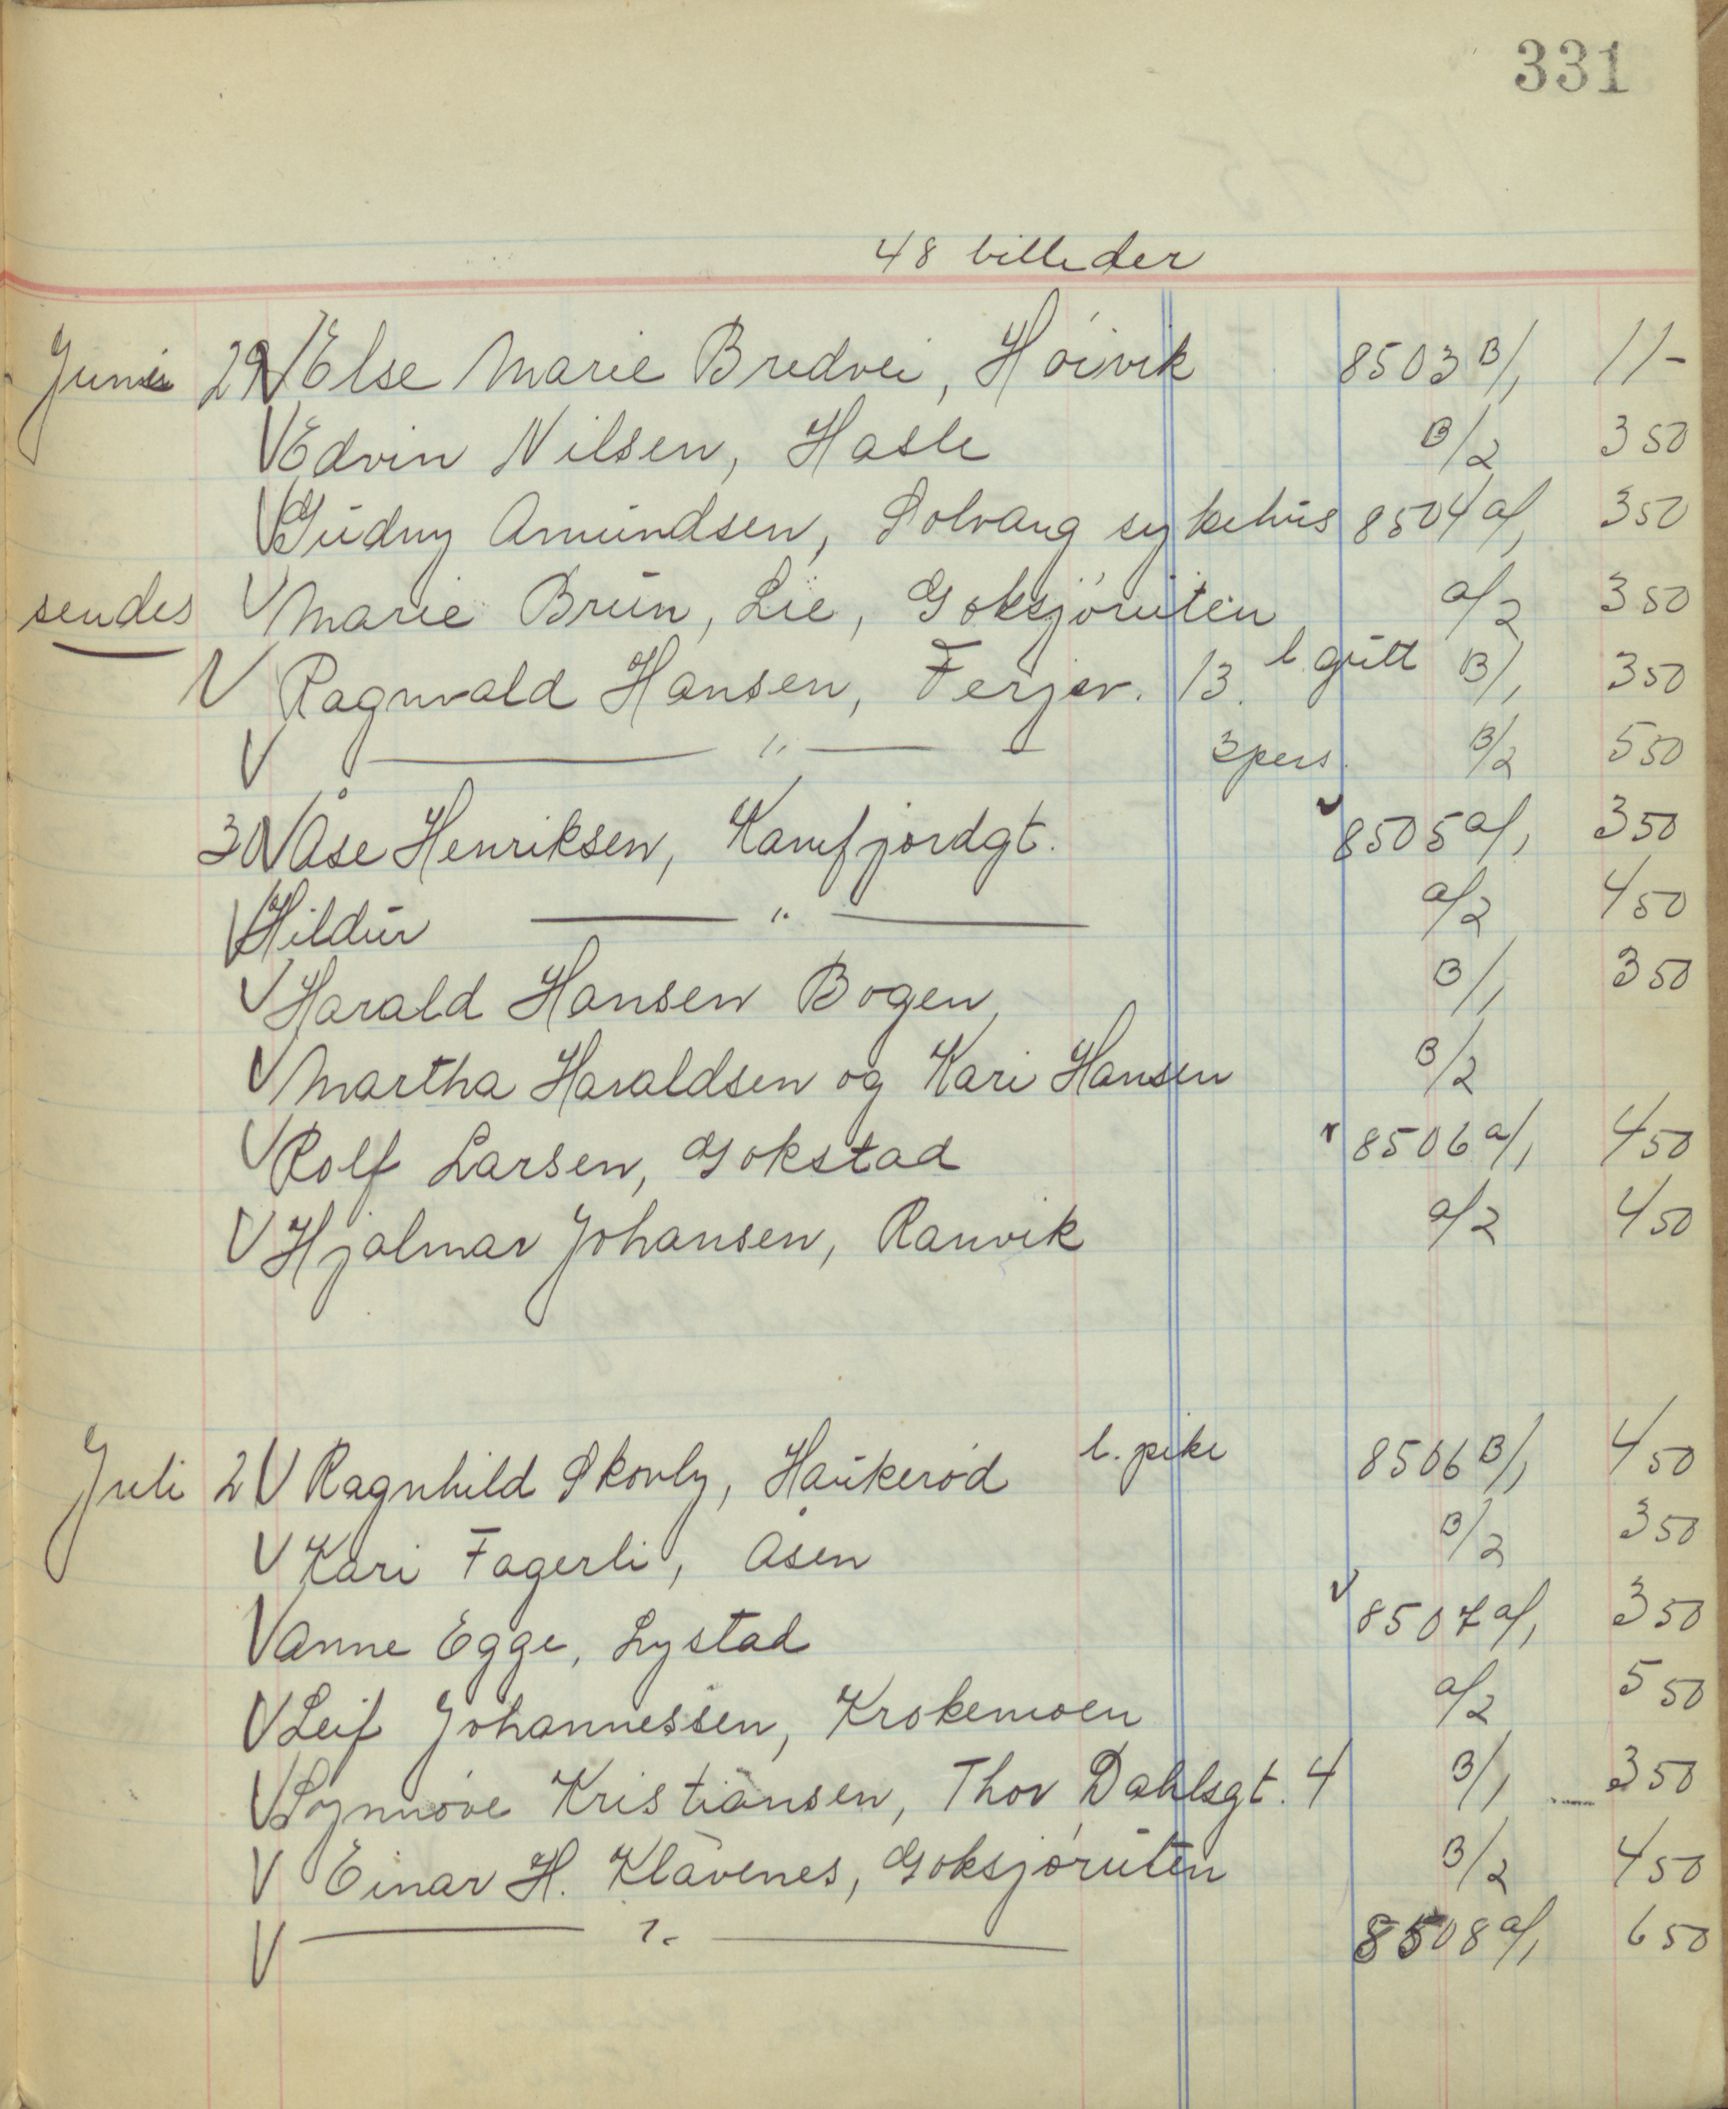 331
48 billeder
Juni 29 V Else Marie Bredvei, Høivik 8503 B/1 11-
V Edvin Nilsen, Hasle B/2 3 50
V Gudny Amundsen, Solvang sykehus 8504 a/1 3 50
sendes V Marie Brun, Lie, Goksjøruten a/2 3 50
V Ragnvald Hansen, Ferjev. 13. l. gutt B/1 3 50
V — " — 3 pers. B/2 5 50
30 V Åse Henriksen, Kamfjordgt. V 8505 a/1 3 50
V Hildur — " — a/2 4 50
V Harald Hansen Bogen B/1 3 50
V Martha Haraldsen og Kari Hansen B/2
V Rolf Larsen, Gokstad v 8506 a/1 4 50
V Hjalmar Johansen, Ranvik a/2 4 50
Juli 2 V Ragnhild Skovly, Haukerød l. pike 8506 B/1 4 50
V Kari Fagerli, Åsen B/2 3 50
V Anne Egge, Lystad V 8507 a/1 3 50
V Leif Johannessen, Krokemoen a/2 5 50
V Synnøve Kristiansen, Thor Dahlsgt. 4 B/1 3 50
V Einar H. Klavenes, Goksjøruten B/2 4 50
V — " — 8508 a/1 6 50